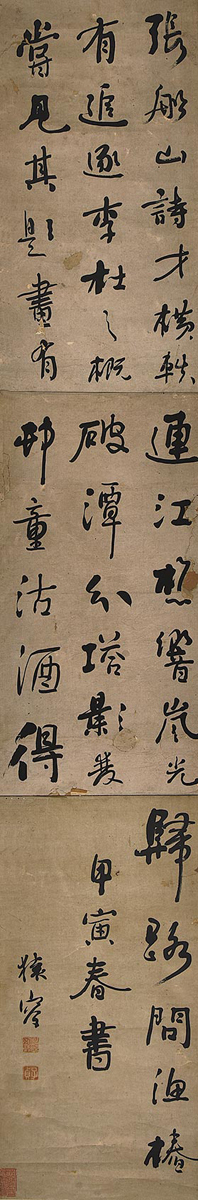 張船山詩才橫軼
有追逐李杜之概
嘗見其題畫有
連江樵響嵐光
破潭分塔影
邨童沽酒得
歸路問漁樁
甲寅春書
猨叟